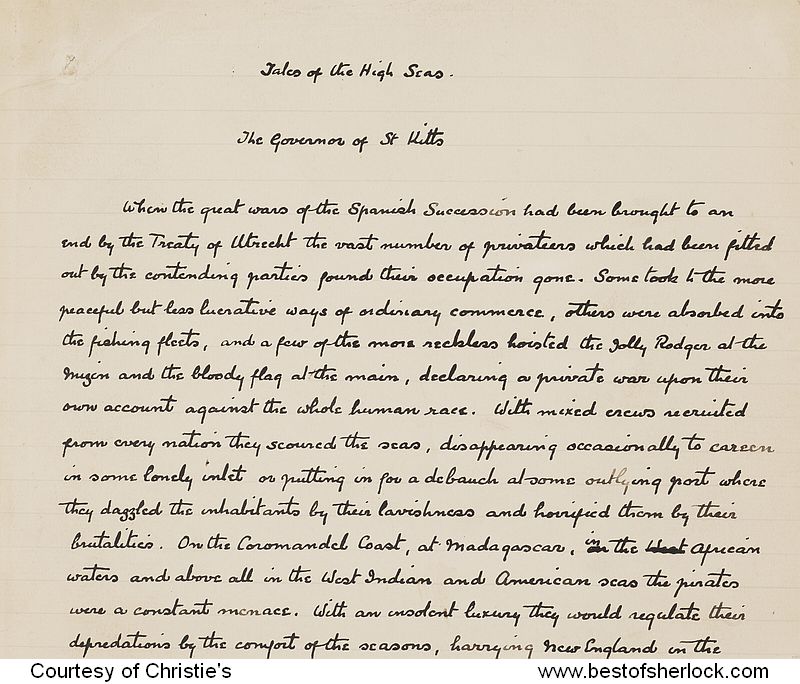 Tales of the High Seas.
The Governor of St Kitts
When the great wars of the Spanish Succession had been brought to an
end by the Treaty of Utrecht the vast number of privateers which had been fitted
out by the contending parties found their occupation gone. Some took to the more
peaceful but less lucrative ways of ordinary commerce, others were absorbed into
the fishing fleets, and a few of the more reckless hoisted the Jolly Rodger at the
mizen and the bloody flag at the main, declaring a private war upon their
own account against the whole human race. With mixed crews recruited
from every nation they scoured the seas, disappearing occasionally to careen
in some lonely inlet or putting in for a debauch at some outlying port where
they dazzled the inhabitants by their lavishness and horrified them by their
brutalities. On the Coromandel Coast, at Madagascar, in the West African
waters and above all in the West Indian and American seas the pirates
were a constant menace. With an insolent luxury they would regulate their
depredations by the comfort of the seasons, harrying New England in the
Courtesy of Christie's
www.bestofsherlock.com